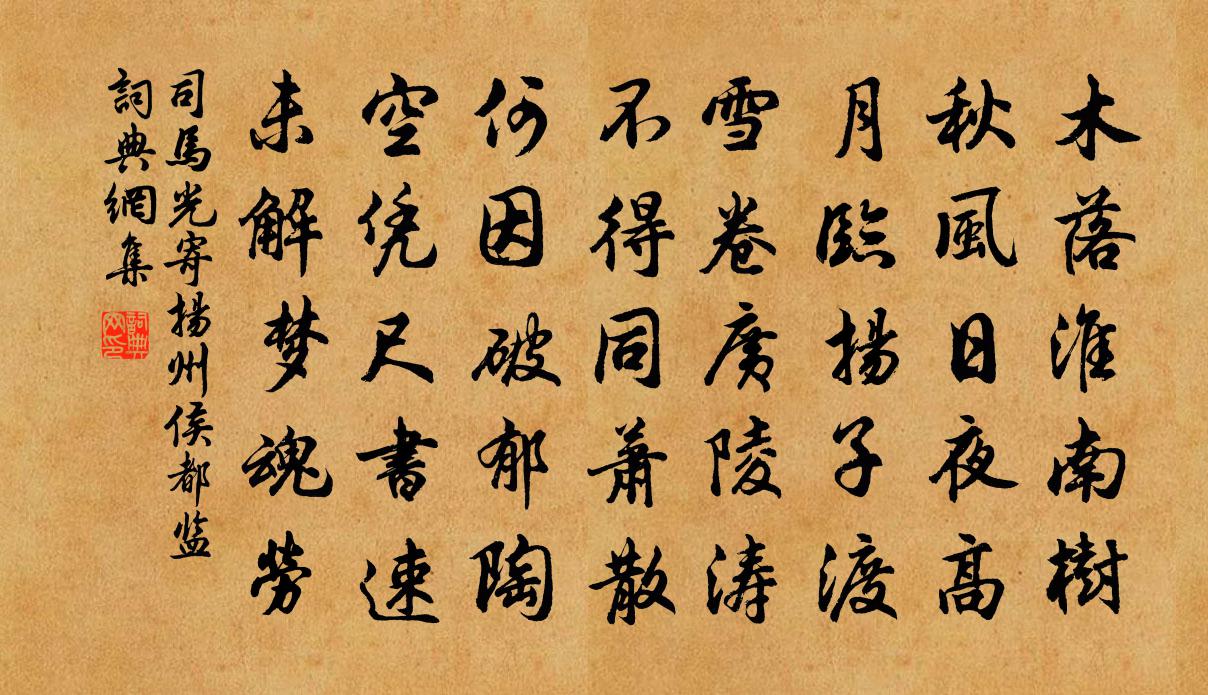 木落淮南樹
秋風日夜高
月臨揚子渡
雪卷廣陵涛
不得同萧散
何因破郁陶
空凭尺書速
未解梦魂勞
司馬光寄揚州侯都监
詞典網集
詞典网印